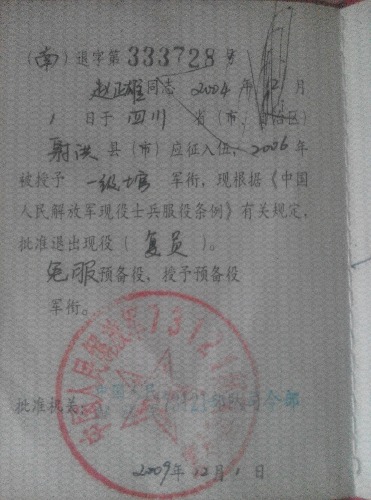 （南）退字第333728号
赵正雄同志 2004年12月
1日于四川省（市、自治区）
射洪县（市）应征入伍，2006年
被授予一级士官军衔，现根据《中国
人民解放军现役士兵服役条例》有关规定，
批准退出现役（复员）。
免服预备役，授予预备役
军衔。
中国人民解放军73121部队
批准机关：73121部队司令部
2009年12月1日